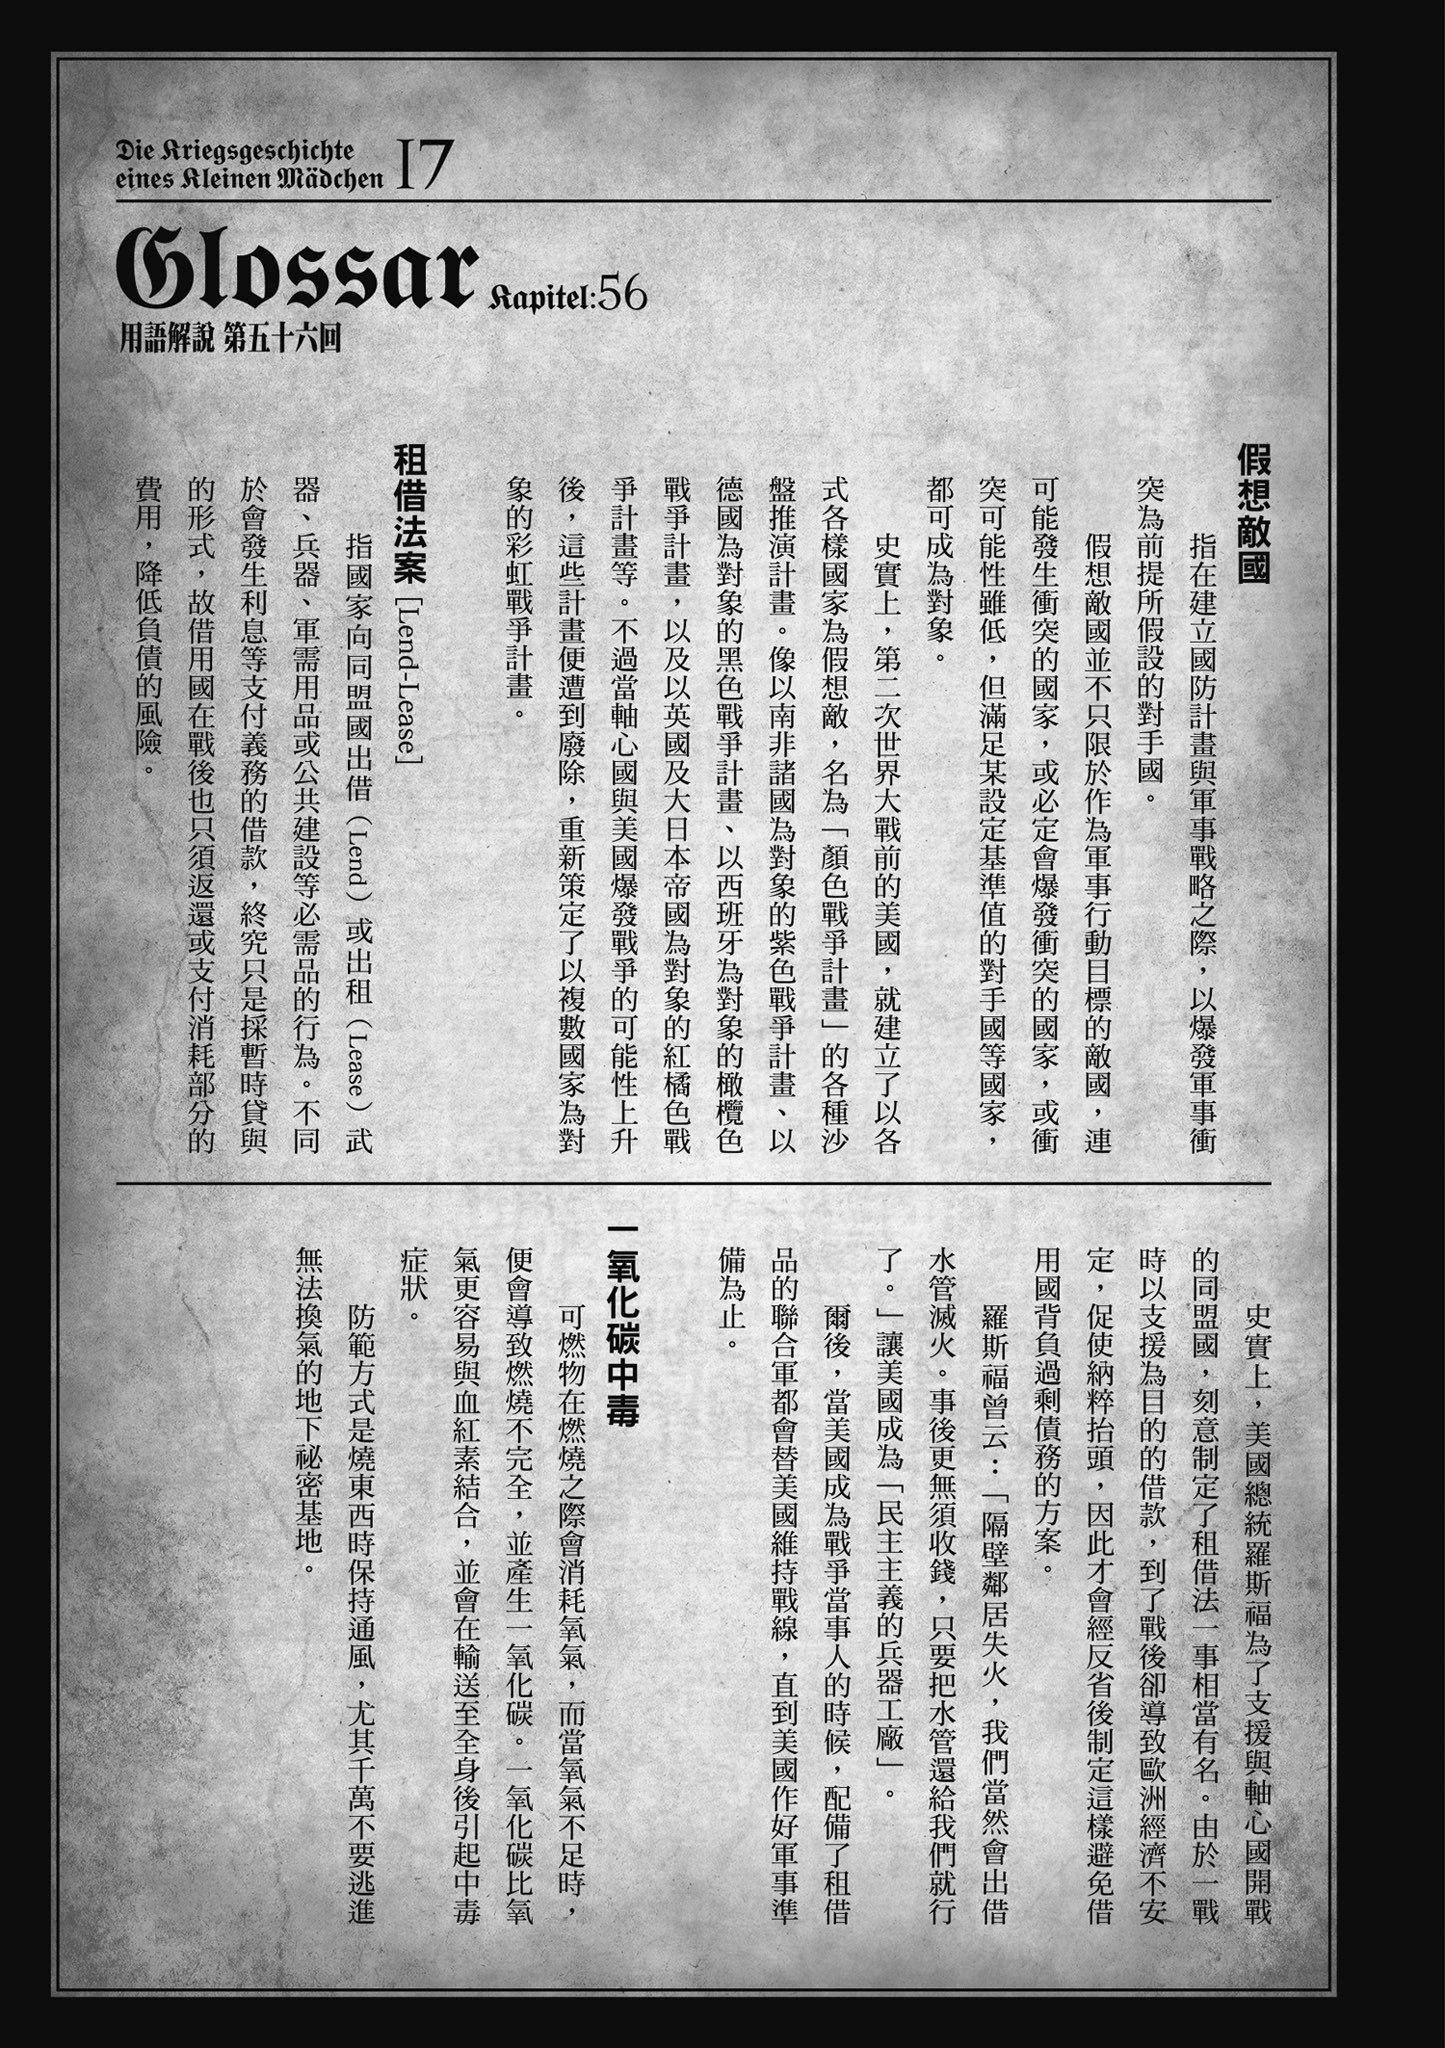 Die Kriegsgeschichte
eines Kleinen Mädchen 17
Glossar Kapitel:56
用語解說 第五十六回
假想敵國
指在建立國防計畫與軍事戰略之際，以爆發軍事衝
突為前提所假設的對手國。
假想敵國並不只限於作為軍事行動目標的敵國，連
可能發生衝突的國家，或必定會爆發衝突的國家，或衝
突可能性雖低，但滿足某設定基準值的對手國等國家，
都可成為對象。
史實上，第二次世界大戰前的美國，就建立了以各
式各樣國家為假想敵，名為「顏色戰爭計畫」的各種沙
盤推演計畫。像以南非諸國為對象的紫色戰爭計畫、以
德國為對象的黑色戰爭計畫、以西班牙為對象的橄欖色
戰爭計畫，以及以英國及大日本帝國為對象的紅橘色戰
爭計畫等。不過當軸心國與美國爆發戰爭的可能性上升
後，這些計畫便遭到廢除，重新策定了以複數國家為對
象的彩虹戰爭計畫。
租借法案［Lend-Lease］
指國家向同盟國出借（Lend）或出租（Lease）武
器、兵器、軍需用品或公共建設等必需品的行為。不同
於會發生利息等支付義務的借款，終究只是採暫時貸與
的形式，故借用國在戰後也只須返還或支付消耗部分的
費用，降低負債的風險。
史實上，美國總統羅斯福為了支援與軸心國開戰
的同盟國，刻意制定了租借法一事相當有名。由於一戰
時以支援為目的的借款，到了戰後卻導致歐洲經濟不安
定，促使納粹抬頭，因此才會經反省後制定這樣避免借
用國背負過剩債務的方案。
羅斯福曾云：「隔壁鄰居失火，我們當然會出借
水管滅火。事後更無須收錢，只要把水管還給我們就行
了。」讓美國成為「民主主義的兵器工廠」。
爾後，當美國成為戰爭當事人的時候，配備了租借
品的聯合軍都會替美國維持戰線，直到美國作好軍事準
備為止。
一氧化碳中毒
可燃物在燃燒之際會消耗氧氣，而當氧氣不足時，
便會導致燃燒不完全，並產生一氧化碳。一氧化碳比氧
氣更容易與血紅素結合，並會在輸送至全身後引起中毒
症狀。
防範方式是燒東西時保持通風，尤其千萬不要逃進
無法換氣的地下祕密基地。